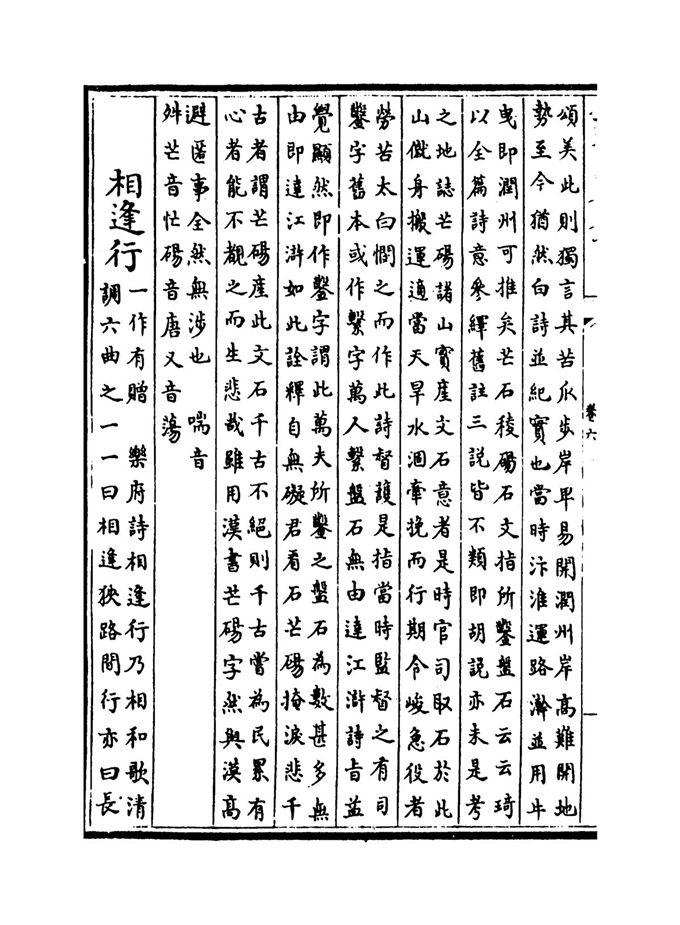 頌美此則獨言其苦瓜步岸卑易開潤州岸高難開地
勢至今猶然白詩並紀實也當時汴淮運路澣並用牛
曳即潤州可推矣芒石稜碭石文指所鑿盤石云云琦
以全篇詩意參繹舊註三說皆不類即胡說亦未是考
之地誌芒碭諸山實産文石意者是時官司取石於此
山僦身搬運適當天旱水涸牽挽而行期令峻急役者
勞苦太白憫之而作此詩督護是指當時監督之有司
鑿字舊本或作繫字萬人繫盤石無由達江滸詩旨益
覺顯然即作鑿字謂此萬夫所鑿之盤石為數甚多無
由即達江滸如此詮釋自無礙君看石芒碭掩淚悲千
古者謂芒碭産此文石千古不絕則千古嘗為民累有
心者能不覩之而生悲哉雖用漢書芒碭字然與漢高
避匿事全然無涉也　喘音
舛芒音忙碭音唐又音蕩
相逢行
一作有贈　樂府詩相逢行乃相和歌清
調六曲之一一曰相逢狹路間行亦曰長
卷六